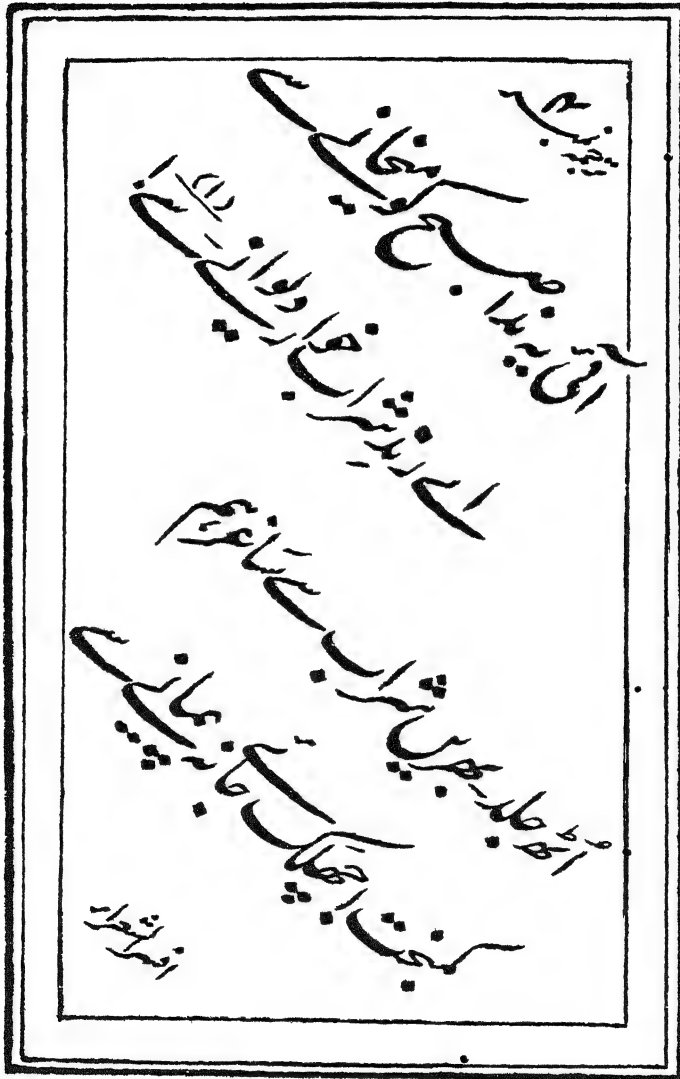 (۱)
آئی یہ ندا صبح کو میخانے سے
اے رندِ شراب خوار دیوانے سے
اُٹھ جلد بھریں شراب سے ساغر ہم
کمبخت چھلک جائے نہ پیمانے سے
افسر الشعراء